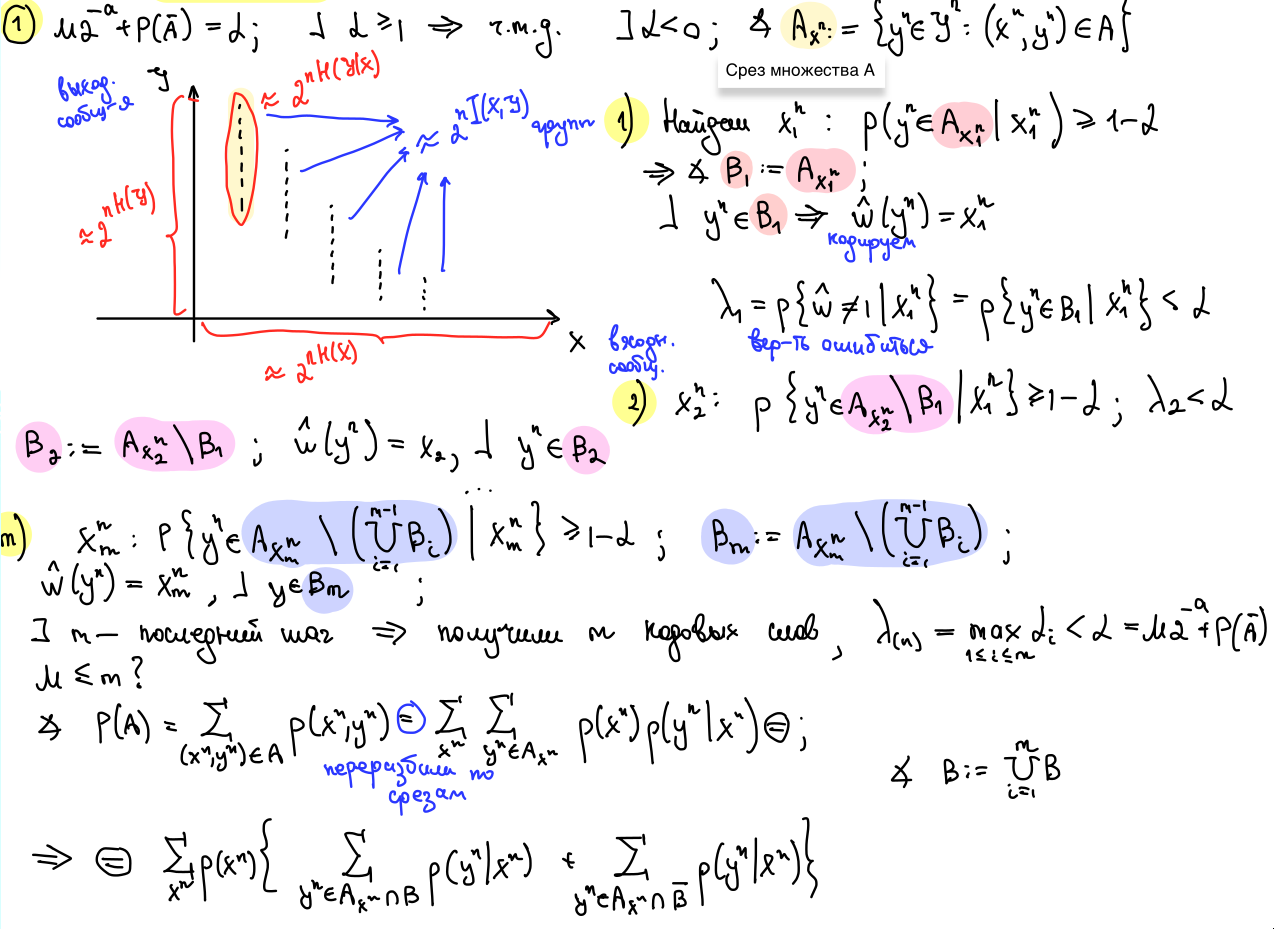 ① M2^{-a} + P(Ā) = α; ⅃ α ≥ 1 ⇒ т.т.д. ⅃ α < 0; ∡ A_{xⁿ} := {yⁿ ∈ 𝒴ⁿ : (xⁿ, yⁿ) ∈ A}
Срез множества A
выход. сообщ-я
Y
≈ 2^{nH(Y|X)}
≈ 2^{nI(X,Y)} групп
≈ 2^{nH(Y)}
X
входн. сообщ.
≈ 2^{nH(X)}
1) Найдем x₁ⁿ : p(yⁿ ∈ A_{x₁ⁿ} | x₁ⁿ) ≥ 1-α
⇒ ∡ B₁ := A_{x₁ⁿ} ;
⅃ yⁿ ∈ B₁ ⇒ ŵ(yⁿ) = x₁ⁿ
кодируем
λ₁ = p{ŵ ≠ 1 | x₁ⁿ} = p{yⁿ ∈ B₁ | x₁ⁿ} < α
вер-ть ошибиться
2) x₂ⁿ : p{yⁿ ∈ A_{x₂ⁿ} \ B₁ | x₁ⁿ} ≥ 1-α ; λ₂ < α
B₂ := A_{x₂ⁿ} \ B₁ ; ŵ(yⁿ) = x₂, ⅃ yⁿ ∈ B₂
...
m) x_mⁿ : P{yⁿ ∈ A_{x_mⁿ} \ (⋃_{i=1}^{m-1} B_i) | x_mⁿ} ≥ 1-α ; B_m := A_{x_mⁿ} \ (⋃_{i=1}^{m-1} B_i) ;
ŵ(yⁿ) = x_mⁿ, ⅃ y ∈ B_m ;
⅃ m — последний шаг ⇒ получили m кодовых слов, λ_{(n)} = max_{1≤i≤m} α_i < α = M2^{-a} + P(Ā)
M ≤ m?
∡ P(A) = ∑_{(xⁿ,yⁿ)∈A} p(xⁿ,yⁿ) = ∑_{xⁿ} ∑_{yⁿ∈A_{xⁿ}} p(xⁿ) p(yⁿ|xⁿ) =;
переразбили по срезам
∡ B := ⋃_{i=1}^{m} B
⇒ = ∑_{xⁿ} p(xⁿ){ ∑_{yⁿ∈A_{xⁿ}∩B} p(yⁿ|xⁿ) + ∑_{yⁿ∈A_{xⁿ}∩B̄} p(yⁿ|xⁿ)}